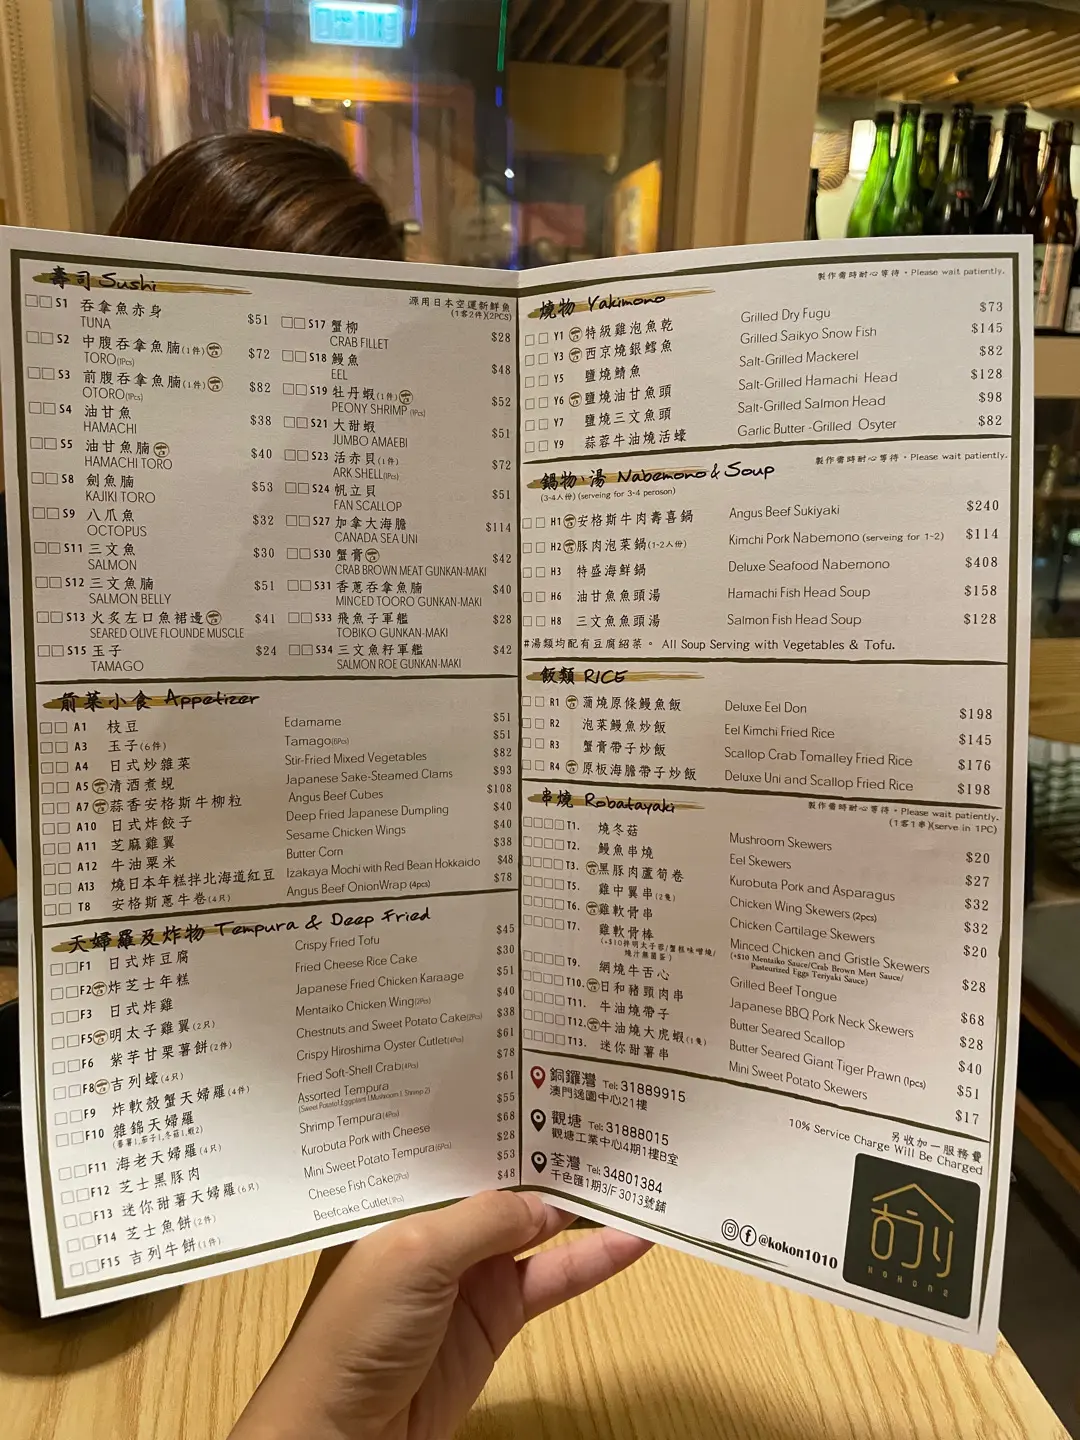 壽司 Sushi
源用日本空運新鮮魚
(1客2件)(2PCS)
S1 吞拿魚赤身 $51
TUNA
S2 中腹吞拿魚腩(1件) $72
TORO(1Pcs)
S3 前腹吞拿魚腩(1件) $82
OTORO(1Pcs)
S4 油甘魚 $38
HAMACHI
S5 油甘魚腩 $40
HAMACHI TORO
S8 劍魚腩 $53
KAJIKI TORO
S9 八爪魚 $32
OCTOPUS
S11 三文魚 $30
SALMON
S12 三文魚腩 $51
SALMON BELLY
S13 火炙左口魚裙邊 $41
SEARED OLIVE FLOUNDE MUSCLE
S15 玉子 $24
TAMAGO
S17 蟹柳 $28
CRAB FILLET
S18 鰻魚 $48
EEL
S19 牡丹蝦(1件) $52
PEONY SHRIMP (1Pcs)
S21 大甜蝦 $51
JUMBO AMAEBI
S23 活赤貝(1件) $72
ARK SHELL(1Pcs)
S24 帆立貝 $51
FAN SCALLOP
S27 加拿大海膽 $114
CANADA SEA UNI
S30 蟹膏 $42
CRAB BROWN MEAT GUNKAN-MAKI
S31 香蔥吞拿魚腩 $40
MINCED TOORO GUNKAN-MAKI
S33 飛魚子軍艦 $28
TOBIKO GUNKAN-MAKI
S34 三文魚籽軍艦 $42
SALMON ROE GUNKAN-MAKI
前菜小食 Appetizer
A1 枝豆 Edamame $51
A3 玉子(6件) Tamago(6Pcs) $51
A4 日式炒雜菜 Stir-Fried Mixed Vegetables $82
A5 清酒煮蜆 Japanese Sake-Steamed Clams $93
A7 蒜香安格斯牛柳粒 Angus Beef Cubes $108
A10 日式炸餃子 Deep Fried Japanese Dumpling $40
A11 芝麻雞翼 Sesame Chicken Wings $40
A12 牛油粟米 Butter Corn $38
A13 燒日本年糕拌北海道紅豆 Izakaya Mochi with Red Bean Hokkaido $48
T8 安格斯蔥牛卷(4只) Angus Beef OnionWrap (4pcs) $78
天婦羅及炸物 Tempura & Deep Fried
F1 日式炸豆腐 Crispy Fried Tofu $45
F2 炸芝士年糕 Fried Cheese Rice Cake $30
F3 日式炸雞 Japanese Fried Chicken Karaage $51
F5 明太子雞翼(2只) Mentaiko Chicken Wing(2Pcs) $40
F6 紫芋甘栗薯餅(2件) Chestnuts and Sweet Potato Cake(2Pcs) $38
F8 吉列蠔(4只) Crispy Hiroshima Oyster Cutlet(4Pcs) $61
F9 炸軟殼蟹天婦羅(4件) Fried Soft-Shell Crab(4Pcs) $78
F10 雜錦天婦羅 Assorted Tempura $61
(蕃薯1,茄子1,冬菇1,蝦2) (Sweet Potato1,Eggplant1,Mushroom 1, Shrimp 2)
F11 海老天婦羅(4只) Shrimp Tempura(4Pcs) $55
F12 芝士黑豚肉 Kurobuta Pork with Cheese $68
F13 迷你甜薯天婦羅(6只) Mini Sweet Potato Tempura(6Pcs) $28
F14 芝士魚餅(2件) Cheese Fish Cake(2Pcs) $53
F15 吉列牛餅(1件) Beefcake Cutlet(1Pcs) $48
燒物 Yakimono
製作需時耐心等待・Please wait patiently.
Y1 特級雞泡魚乾 Grilled Dry Fugu $73
Y3 西京燒銀鱈魚 Grilled Saikyo Snow Fish $145
Y5 鹽燒鯖魚 Salt-Grilled Mackerel $82
Y6 鹽燒油甘魚頭 Salt-Grilled Hamachi Head $128
Y7 鹽燒三文魚頭 Salt-Grilled Salmon Head $98
Y9 蒜蓉牛油燒活蠔 Garlic Butter -Grilled Osyter $82
鍋物、湯 Nabemono & Soup
製作需時耐心等待・Please wait patiently.
(3-4人份) (serveing for 3-4 peroson)
H1 安格斯牛肉壽喜鍋 Angus Beef Sukiyaki $240
H2 豚肉泡菜鍋(1-2人份) Kimchi Pork Nabemono (serveing for 1-2) $114
H3 特盛海鮮鍋 Deluxe Seafood Nabemono $408
H6 油甘魚魚頭湯 Hamachi Fish Head Soup $158
H8 三文魚魚頭湯 Salmon Fish Head Soup $128
#湯類均配有豆腐紹菜。 All Soup Serving with Vegetables & Tofu.
飯類 RICE
R1 蒲燒原條鰻魚飯 Deluxe Eel Don $198
R2 泡菜鰻魚炒飯 Eel Kimchi Fried Rice $145
R3 蟹膏帶子炒飯 Scallop Crab Tomalley Fried Rice $176
R4 原板海膽帶子炒飯 Deluxe Uni and Scallop Fried Rice $198
串燒 Robatayaki
製作需時耐心等待・Please wait patiently.
(1客1串)(serve in 1PC)
T1. 燒冬菇 Mushroom Skewers $20
T2. 鰻魚串燒 Eel Skewers $27
T3. 黑豚肉蘆筍卷 Kurobuta Pork and Asparagus $32
T5. 雞中翼串(2隻) Chicken Wing Skewers (2pcs) $32
T6. 雞軟骨串 Chicken Cartilage Skewers $20
T7. 雞軟骨棒 Minced Chicken and Gristle Skewers $28
(+$10 Mentaiko Sauce/Crab Brown Mert Sauce/
Pasteurized Eggs Teriyaki Sauce)
T9. 網燒牛舌心 Grilled Beef Tongue $68
T10. 日和豬頸肉串 Japanese BBQ Pork Neck Skewers $28
T11. 牛油燒帶子 Butter Seared Scallop $40
T12. 牛油燒大虎蝦(1隻) Butter Seared Giant Tiger Prawn (1pcs) $51
T13. 迷你甜薯串 Mini Sweet Potato Skewers $17
銅鑼灣 Tel: 31889915
澳門逸園中心21樓
觀塘 Tel: 31888015
觀塘工業中心4期1樓B室
荃灣 Tel: 34801384
千色匯1期3/F 3013號舖
另收加一服務費
10% Service Charge Will Be Charged
@kokon1010
KOKON